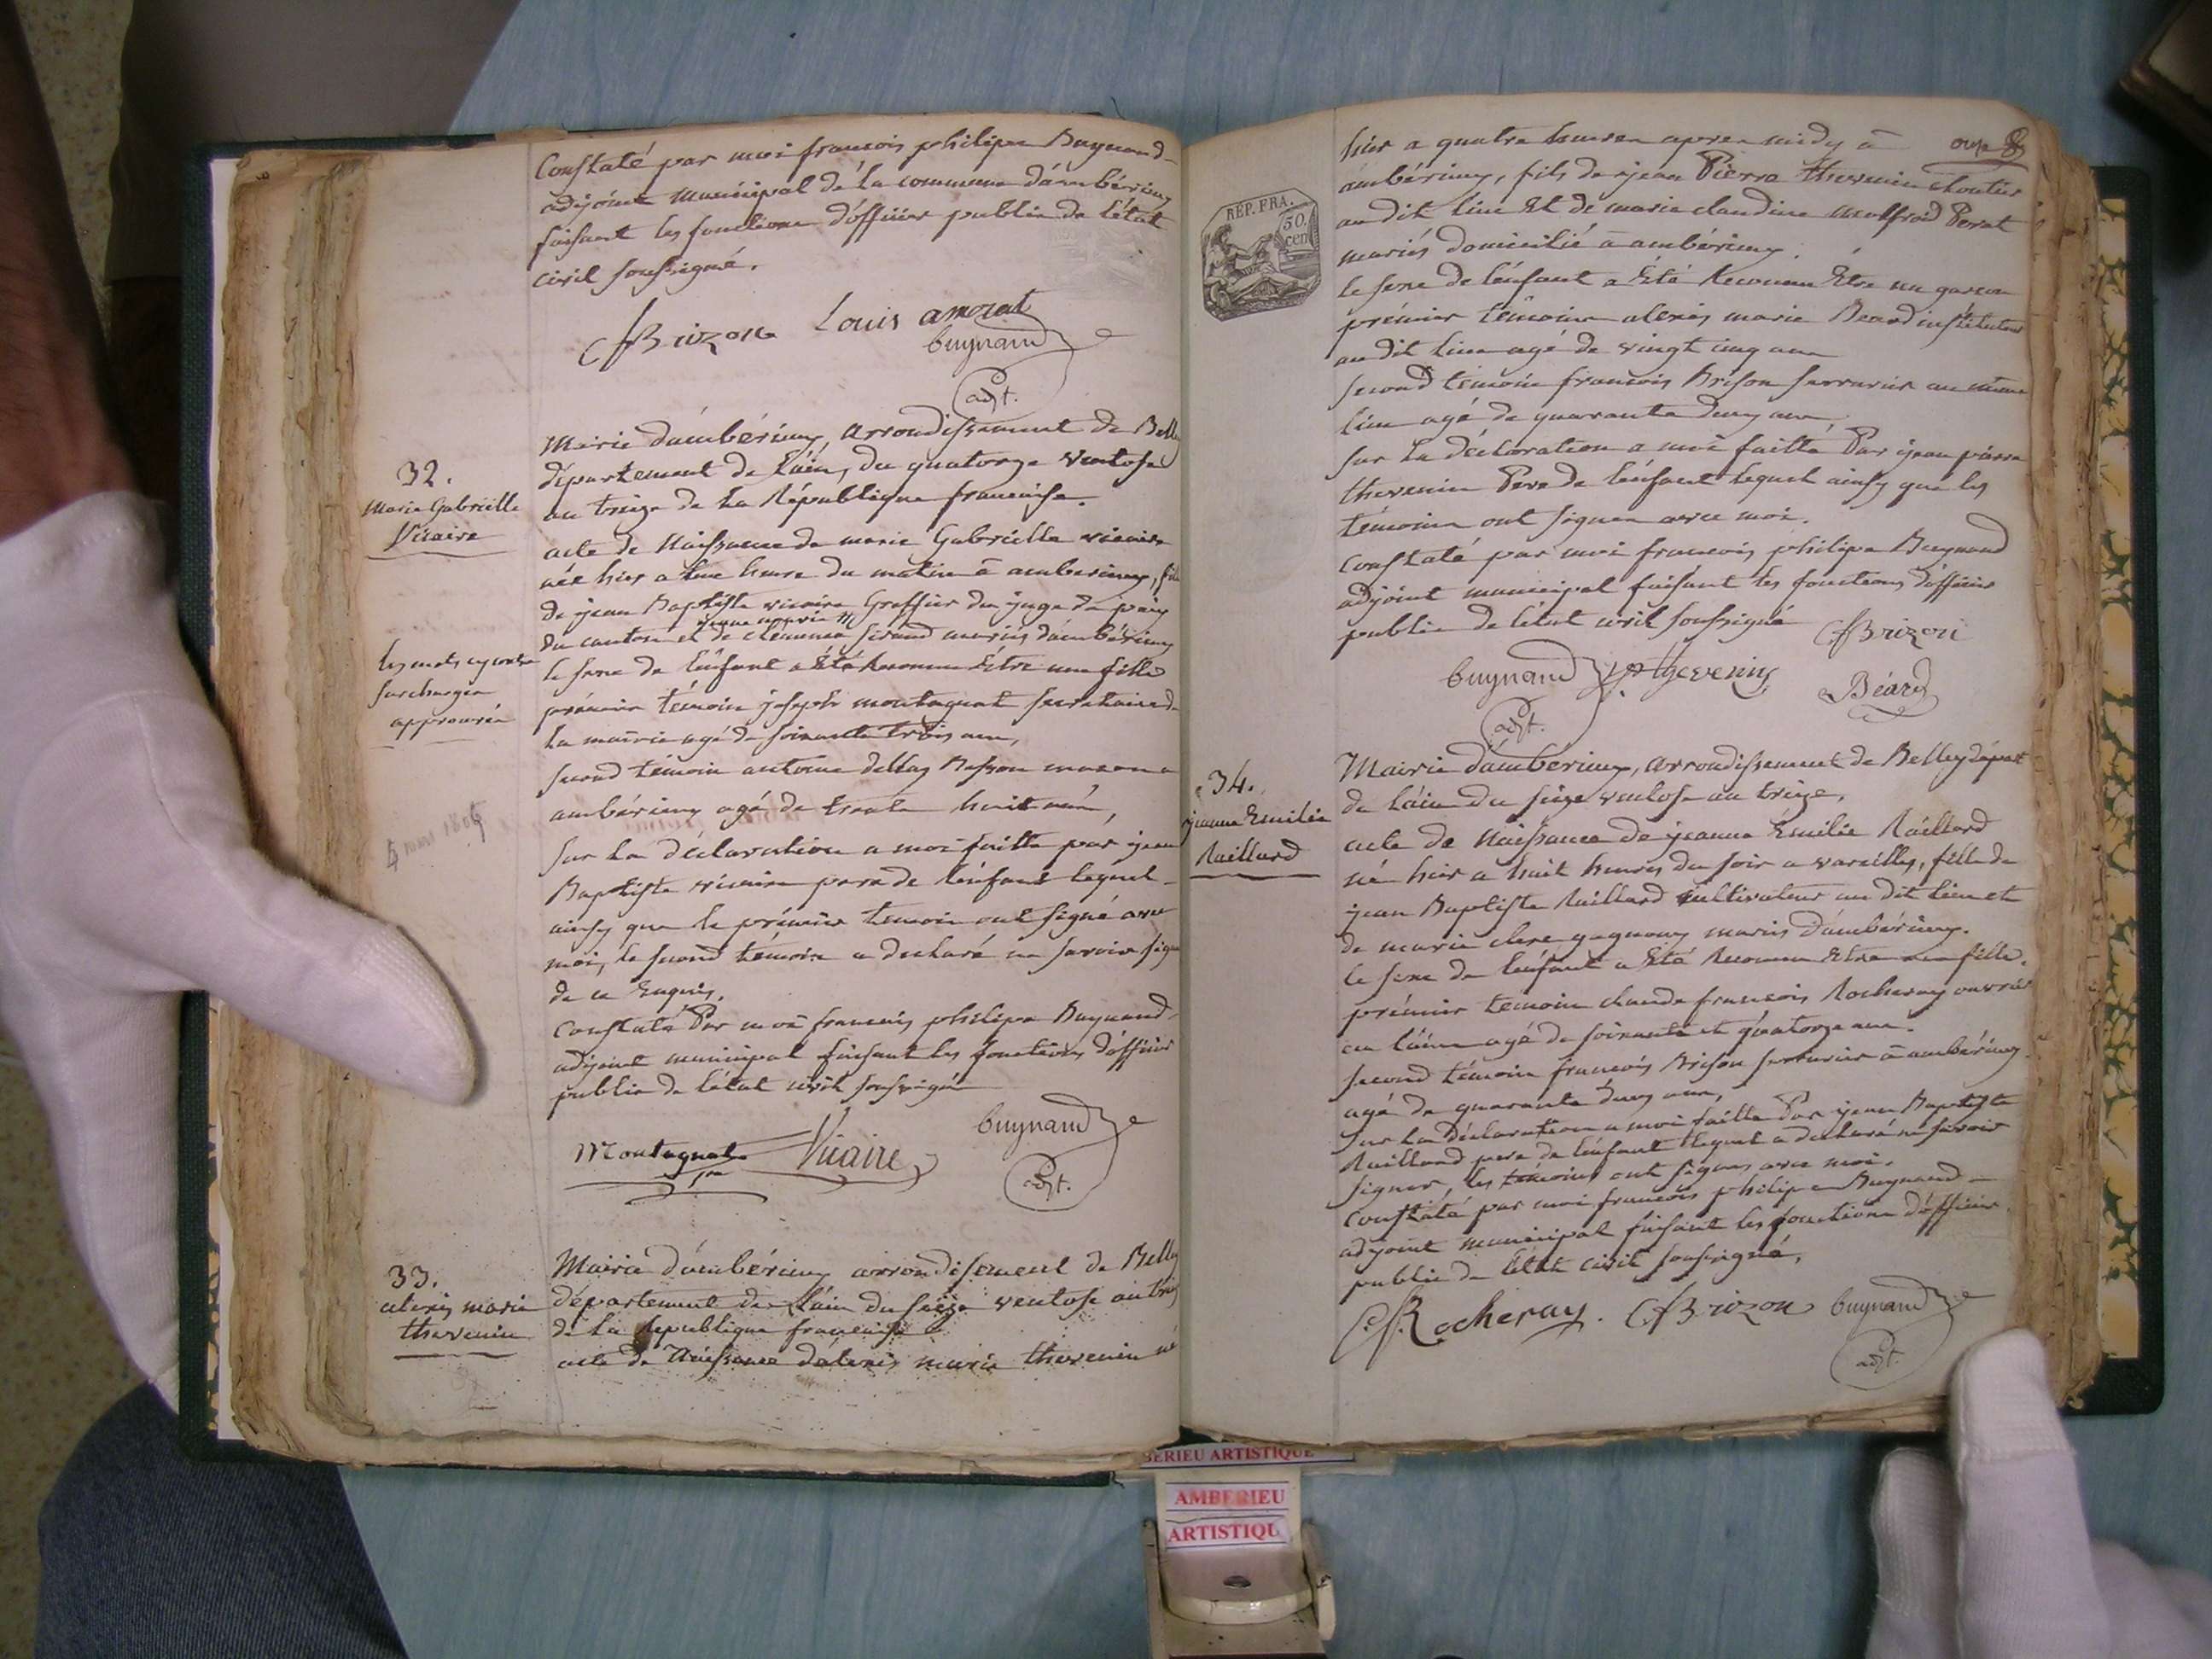 Constaté par moi francois philipe Buynand
adjoint municipal de la commune dambérieux
faisant les fonctions d'officier public de l'état
civil soussigné.
Brizon Louis amorat
buynand
adjt.
32.
Marie Gabriélle
Vicaire
Mairie dambérieux, arrondissement de Belley
département de l'ain, du quatorze ventose
an treize de la République francaise.
acte de Naissance de marie Gabriélle vicaire
née hier a une heure du matin à amberieux, fille
de jean Baptiste vicaire Greffier du juge de paix
du canton et de jeanne marie clémence Sirand mariés d'ambérieux
le sexe de l'enfant a Eté Reconnu Etre une fille
les mots cy contre
surchargés
approuvés
prémier témoin joseph montagnat secretaire de
la mairie agé de soixante trois ans,
second témoin antoine dellaz Besson maçon a
ambérieux agé de trente huit ans,
sur la déclaration a moi faitte par jean
Baptiste vicaire pere de l'enfant lequel
ainsy que le prémier temoin ont signé avec
moi, le second témoin a declaré ne savoir signer
de ce Enquis.
Constaté Par moi francois philipe Buynand
adjoint municipal faisant les fonctions d'officier
public de l'état civil soussigné
Montagnat Vicaire buynand
adjt.
33.
alexis marie
thevenin
Mairie d'ambérieux arrondisement de Belley
département de l'ain du seize ventose an treize
de la Republique francaise
acte de Naissance d'alexis marie thevenin né
onze
hier a quatre heures apres midy à
ambérieux, fils de jean Pierre thevenin
au dit lieu Et de marie claudine Perrat
mariés domicilié à ambérieux.
le sexe de l'enfant a Eté Reconnu Etre un garcon
prémier témoin alexis marie Beard instituteur
au dit lieu agé de vingt cinq ans
second temoin francois Brison serrurier au même
lieu agé de quarante deux ans,
sur la déclaration a moi faitte Par jean pierre
thevenin Pere de l'enfant lequel ainsy que les
témoins ont signés avec moi.
Constaté par moi francois philipe Buynand
adjoint municipal faisant les fonctions d'officier
public de l'état civil soussigné Brizon
buynand thevenin Béard
adjt.
REP. FRA.
50.
cen
34.
jeanne Emilie
Raillard
Mairie d'amberieux, arrondissement de Belley départ
de l'ain du seize ventose an treize.
acte de Naissance de jeanne Emilie Raillard
né hier a huit heures du soir a vareilles, fille de
jean Baptiste Raillard cultivateur au dit lieu et
de marie clere gagneux mariés d'ambérieux.
le sexe de l'enfant a Eté Reconnu Etre une fille.
prémier temoin claude francois Rocheray ouvrier
en laine agé de soixante et quatorze ans.
second témoin francois Brison serrurier à ambérieux
agé de quarante deux ans,
sur la déclaration a moi faitte Par jean Baptiste
Raillard pere de l'enfant lequel a declaré ne savoir
signer, les témoins ont signés avec moi.
Constaté par moi francois philipe Buynand
adjoint municipal faisant les fonctions d'officier
public de l'état civil soussigné.
Rocheray. Brizon buynand
adjt.
BERIEU ARTISTIQUE
AMBERIEU
ARTISTIQU